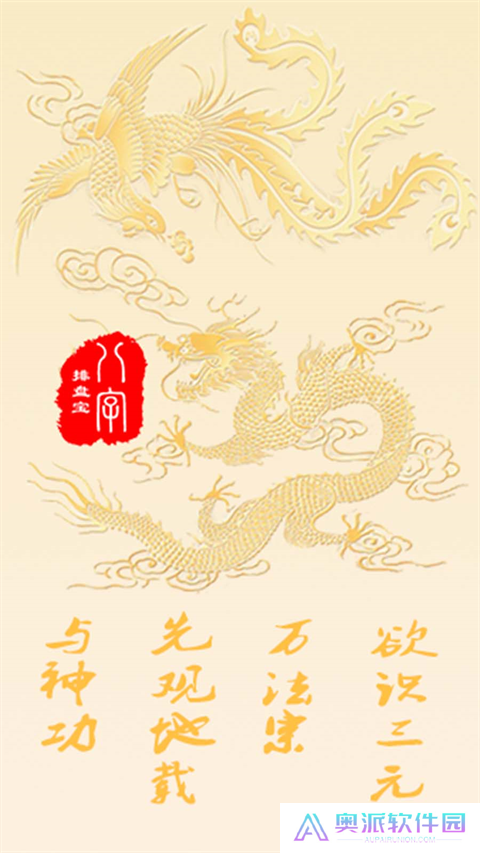 八字
排盘宝
欲识三元
万法宗
先观地载
与神功
奥派软件园
AUPAIRUNION.COM